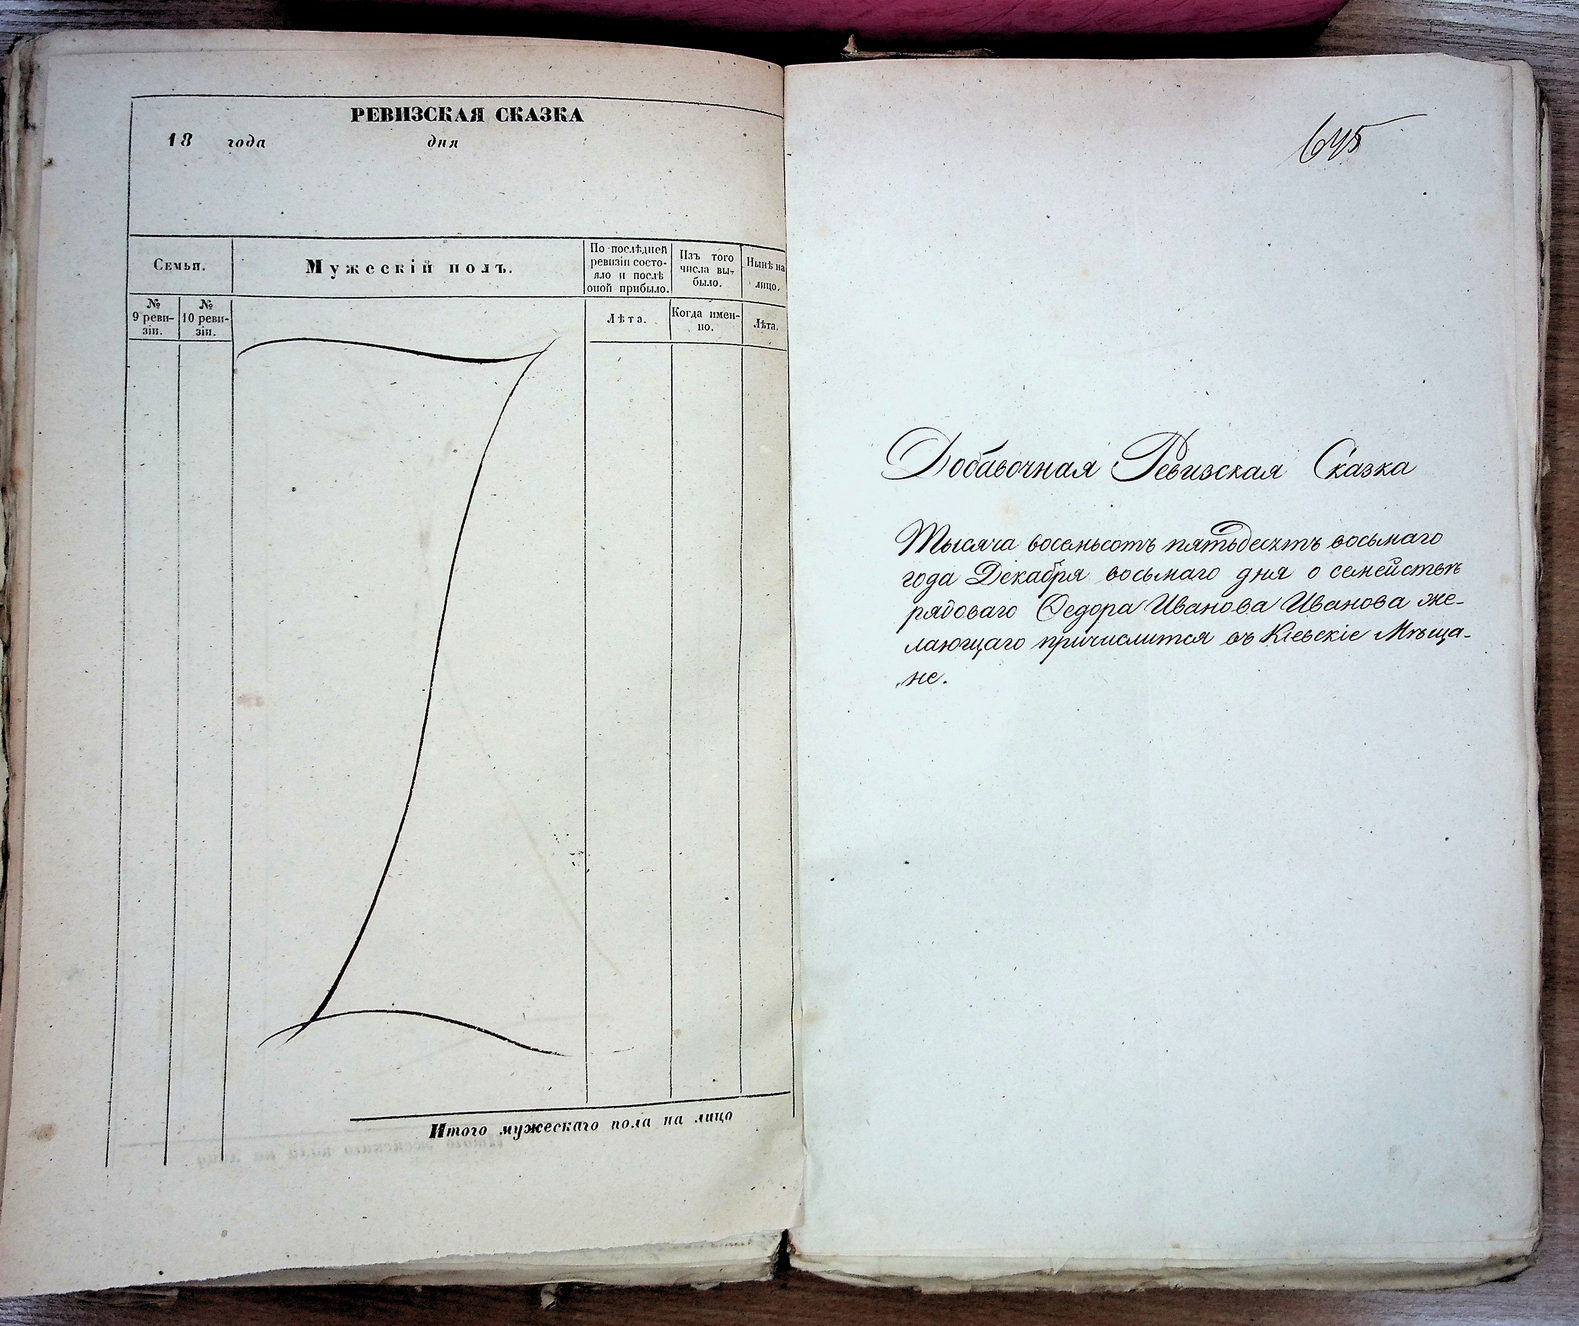 РЕВИЗСКАЯ СКАЗКА
18 года дня
Семьи.
Мужескій полъ.
По послѣдней
ревизіи состо-
яло и послѣ
оной прибыло.
Изъ того
числа вы-
было.
Нынѣ на
лицо.
№
9 реви-
зіи.
№
10 реви-
зіи.
Лѣта.
Когда имен-
но.
Лѣта.
Итого мужескаго пола на лицо
645
Добавочная Ревизская Сказка
Тысяча восемьсотъ пятьдесятъ восьмаго
года Декабря восьмаго дня о семействѣ
рядоваго Ѳедора Иванова Иванова же-
лающаго причислится въ Кіевскіе Мѣща-
не.